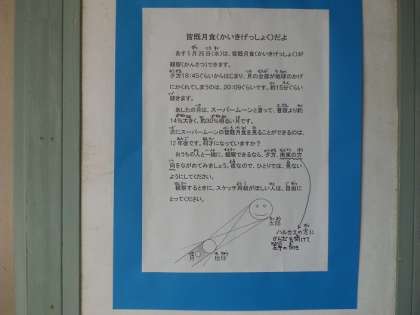 皆既月食(かいきげっしょく)だよ
あす5月26日(水)は、皆既月食(かいきげっしょく)が
観察(かんさつ)できます。
夕方18:45ぐらいからはじまり、月の全部が地球のかげ
にかくれてしまうのは、20:09ぐらいです。約15分ぐらい
続きます。
あしたの月は、スーパームーンと言って、普段より約
14%大きく、約30%明るい月です。
次にスーパームーンの皆既月食を見ることができるのは、
12年後です。何才になっていますか?
おうちの人と一緒に、観察できるなら、夕方、南東の方
向をながめてみましょう。夜なので、ひとりでは、見ない
ようにしてください。
観察するときに、スケッチ用紙がほしい人は、自由に
とってください。
太陽
地球
月
ハルカスの方に